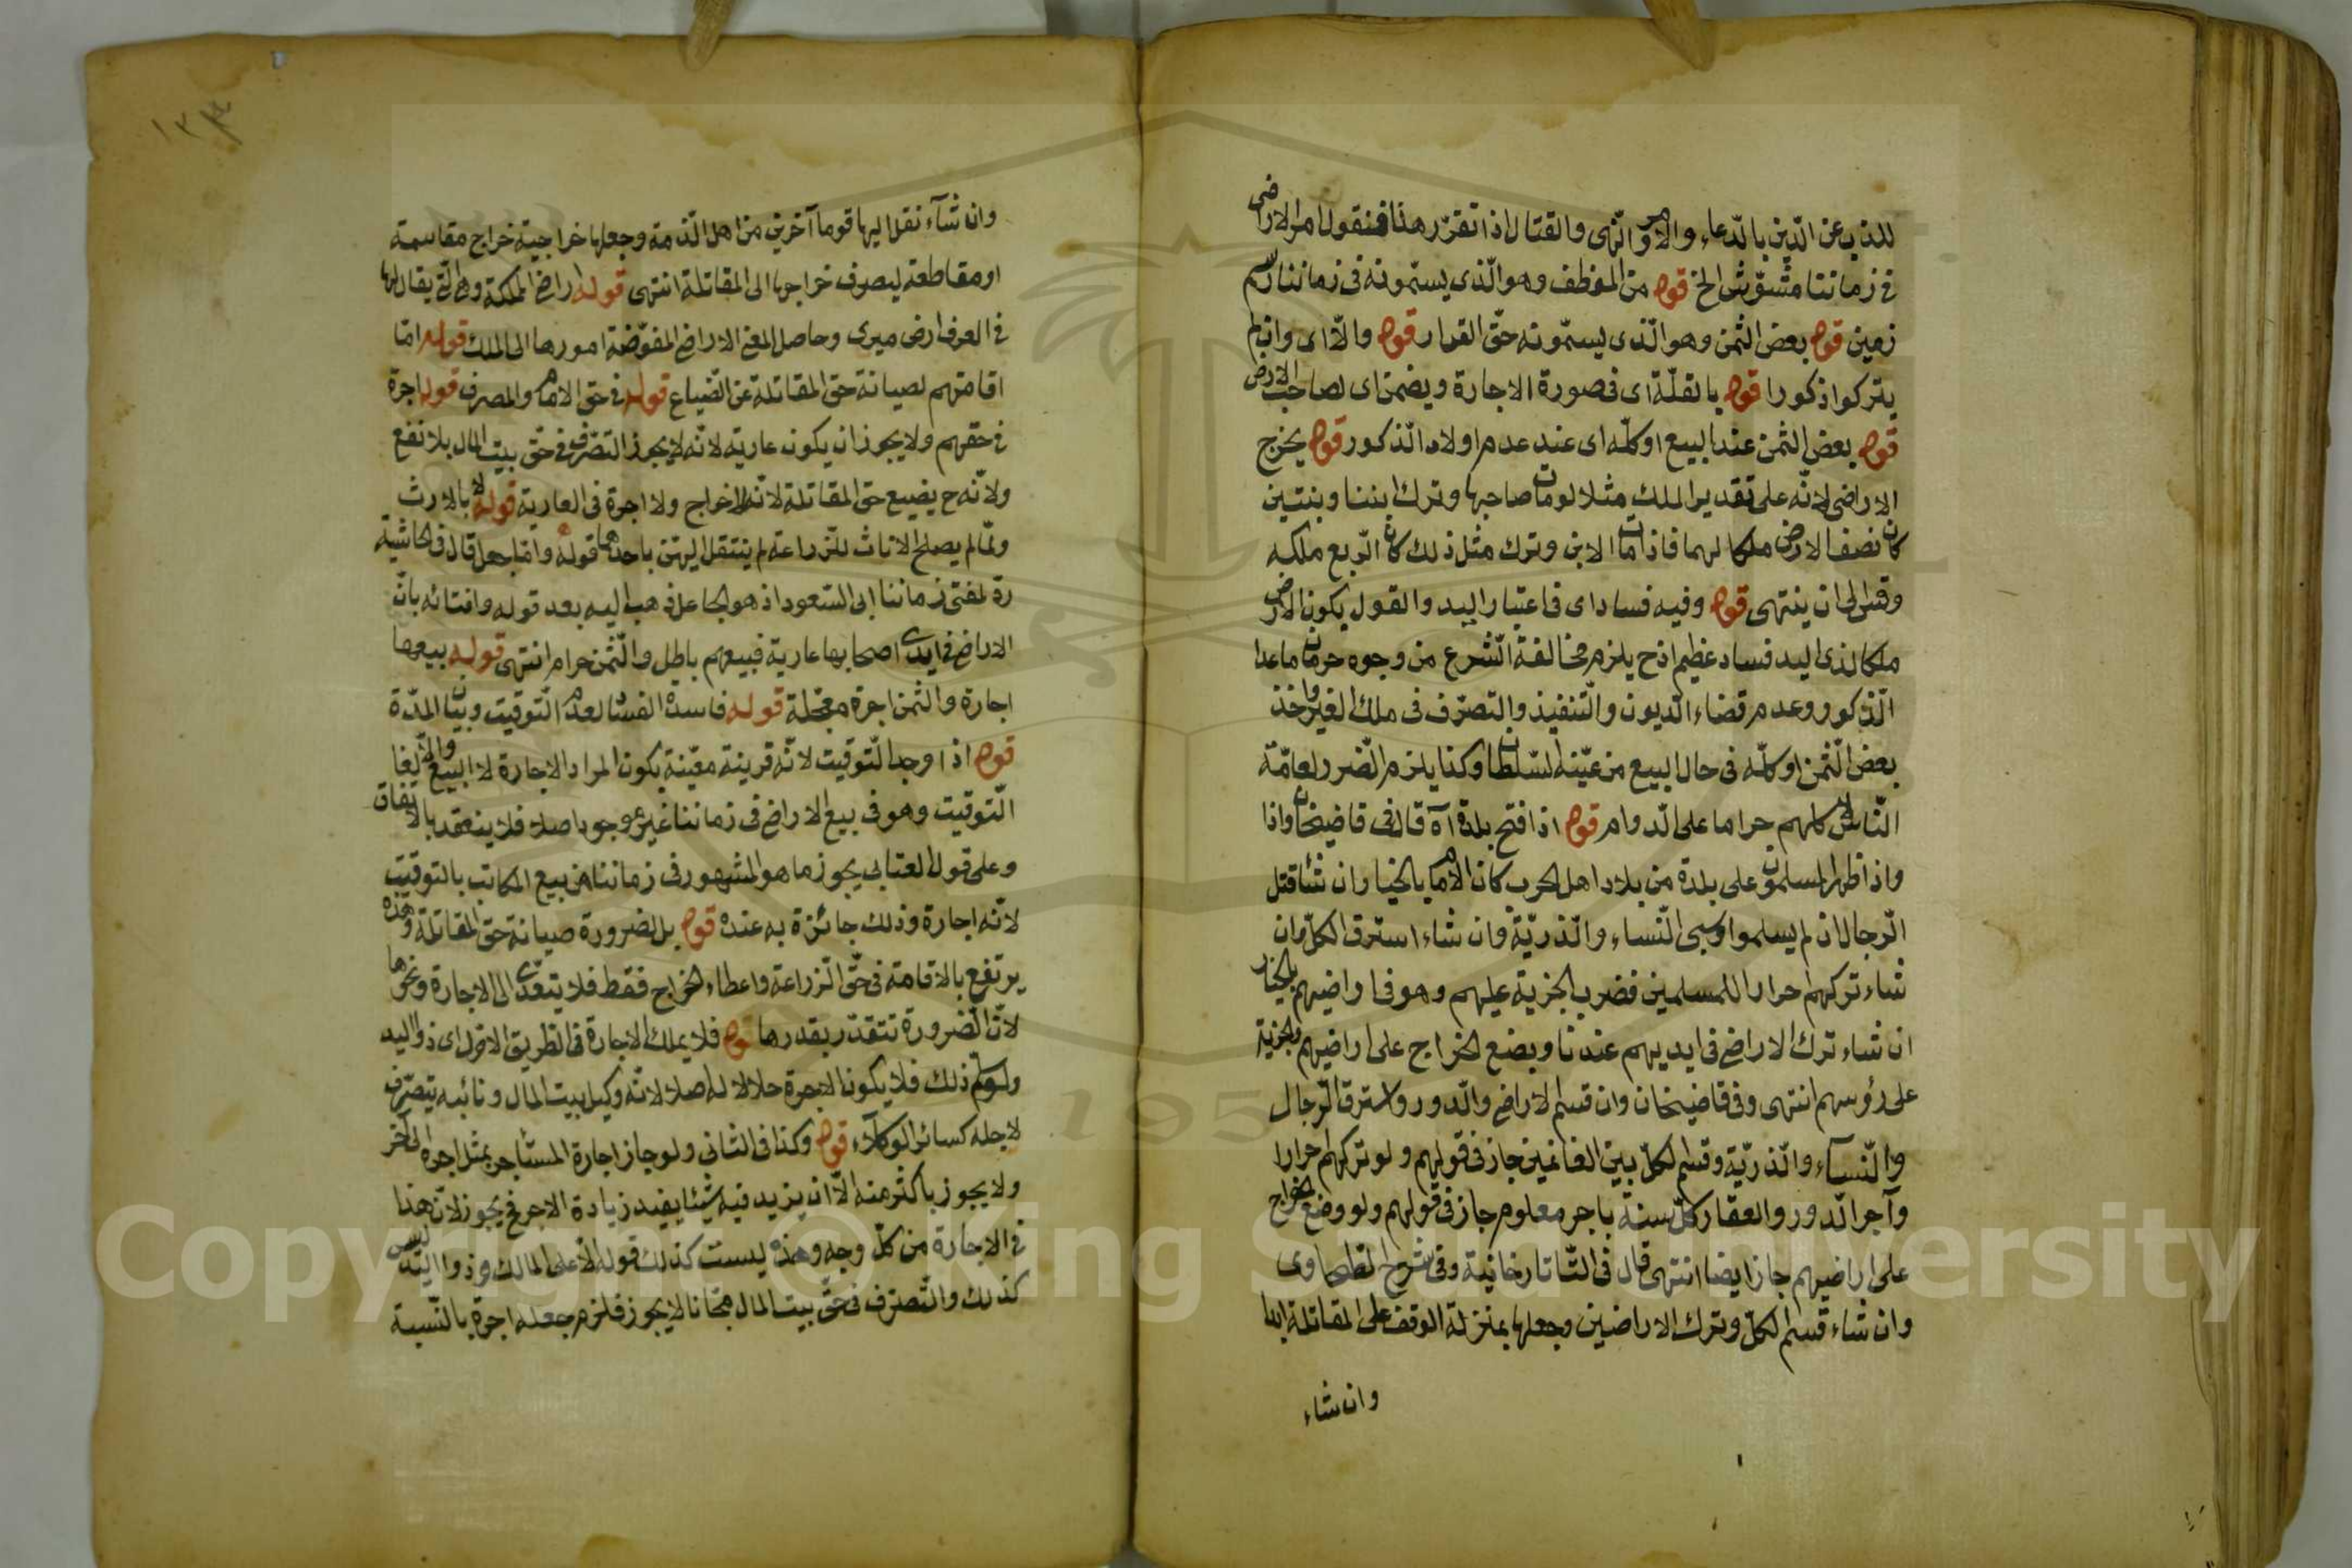 للذب عن الدّين بالدّعاء والامر والنّهى والقتال اذا تقرّر هذا فنقول امر الاراضى
فى زماننا مشوّش الخ قوله من الموظف وهو الّذى يسمّونه فى زماننا رسم
زمين قوله بعض الثمن وهو الّذى يسمّونه حقّ القرار قوله والّا اى وان لم
يتركوا ذكورا قوله بالغلّة اى فى صورة الاجارة ويضمن اى لصاحب الارض
قوله بعض الثمن عند البيع او كلّه اى عند عدم اولاد الذكور قوله يخرج
الاراضى لانّه على تقدير الملك مثلا لو مات صاحبها وترك ابنا وبنتين
كان نصف الارض ملكا لهما فاذا مات الابن وترك مثل ذلك كان الرّبع ملكه
وقس الى ان ينتهى قوله وفيه فساد اى فى اعتبار اليد والقول بكون الارض
ملكا لذى اليد فساد عظيم اذ ح يلزم مخالفة الشّرع من وجوه حرمان ماعدا
الذكور وعدم قضاء الدّيون والتّنفيذ والتصرّف فى ملك الغير واخذ
بعض الثّمن او كلّه فى حال البيع من عيّنه السّلطان وكذا يلزم الضّرر لعامّة
النّاس كلهم حراما على الدّوام قوله اذا فتح بلدة آه قال فى قاضيخان واذا
واذا ظهر المسلمون على بلدة من بلاد اهل الحرب كان الامام بالخيار ان شاء قتل
الرّجال ان لم يسلموا وسبى النّساء والذّريّة وان شاء استرق الكلّ وان
شاء تركهم احرارا للمسلمين فضرب الجزية عليهم وهو فى اراضيهم بالخيار
ان شاء ترك الاراضى فى ايديهم عندنا ويضع الخراج على اراضيهم والجزية
على رؤسهم انتهى وفى قاضيخان وان قسم الاراضى والدّور واسترق الرّجال
والنّسآء والذّريّة وقسم الكلّ بين الغانمين جاز فى قولهم ولو تركهم احرارا
وآجر الدّور والعقار كلّ سنة باجر معلوم جاز فى قولهم ولو وضع الخراج
على اراضيهم جاز ايضا انتهى قال فى التّاتارخانية وفى شرح الطحاوى
وان شاء قسم الكلّ وترك الاراضين وجعلها بمنزلة الوقف على المقاتلة ابدا
وان شاء
وان شآء نقل اليها قوما آخرين من اهل الذّمة وجعلها خراجية خراج مقاسمة
او مقاطعة ليصرف خراجها الى المقاتلة انتهى قوله اراضى المملكة وهى الّتى يقال لها
فى العرف ارض ميرى وحاصل المعنى الاراضى المفوّضة امورها الى الملك قوله امّا
اقامتهم لصيانة حق المقاتلة عن الضياع قوله فى حق الامام والمصرف قوله اجرة
فى حقهم ولا يجوز ان يكون عارية لانّه لا يجوز التصّرف فى حقّ بيت المال بلا نفع
ولانّه ح يضيع حق المقاتلة لانّه لا خراج ولا اجرة فى العارية قوله لا بالارث
ولمّا لم يصلح الاناث للزراعة لم ينتقل اليهنّ باحدهما قوله وامّا جعل قال فى الحاشية
ردّ لمفتى زماننا ابى السّعود اذ هو الجاعل ذهب اليه بعد قوله وافتائه بانّ
الاراضى فى ايدى اصحابها عارية فبيعهم باطل والثّمن حرام انتهى قوله بيعها
اجارة والثمن اجرة معجّلة قوله فاسدة الفساد لعدم التّوقيت وبيان المدّة
قوله اذا وجد التّوقيت لانّه قرينة معيّنة بكون المراد الاجارة لا البيع والّا لغا
التّوقيت وهو فى بيع الاراضى فى زماننا غير موجود اصلا فلا ينعقد بالاتفاق
وعلى قول العتابى يجوز ما هو المشهور فى زماننا من بيع المكاتب بالتوقيت
لانّه اجارة وذلك جائزة به عنده قوله بل لضرورة صيانة حق المقاتلة وهذه
يرتفع بالاقامة فى حقّ الزراعة واعطاء الخراج فقط فلا يتعدّى الى الاجارة ونحوها
لانّ الضّرورة تتقدّر بقدرها قوله فلا يملك الاجارة فى الطريق الاوّل اى ذو اليد
ولو سلم ذلك فلا يكون الاجرة حلالا له اصلا لانّه وكيل بيت المال ونائبه يتصّرف
لاجله كسائر الوكلاء قوله وكذا فى الثانى ولو جاز اجارة المستأجر بمثل اجره الى آخر
ولا يجوز باكثر منه الّا ان يزيد فيه شيئا يفيد زيادة الاجر فح يجوز لانّ هذا
فى الاجارة من كلّ وجه وهذه ليست كذلك قوله لا على المالك وذو اليد ليس
كذلك والتّصرّف فى حقّ بيت المال مجّانا لا يجوز فلزم جعله اجرة بالنّسبة
Copyright © King Saud University
195